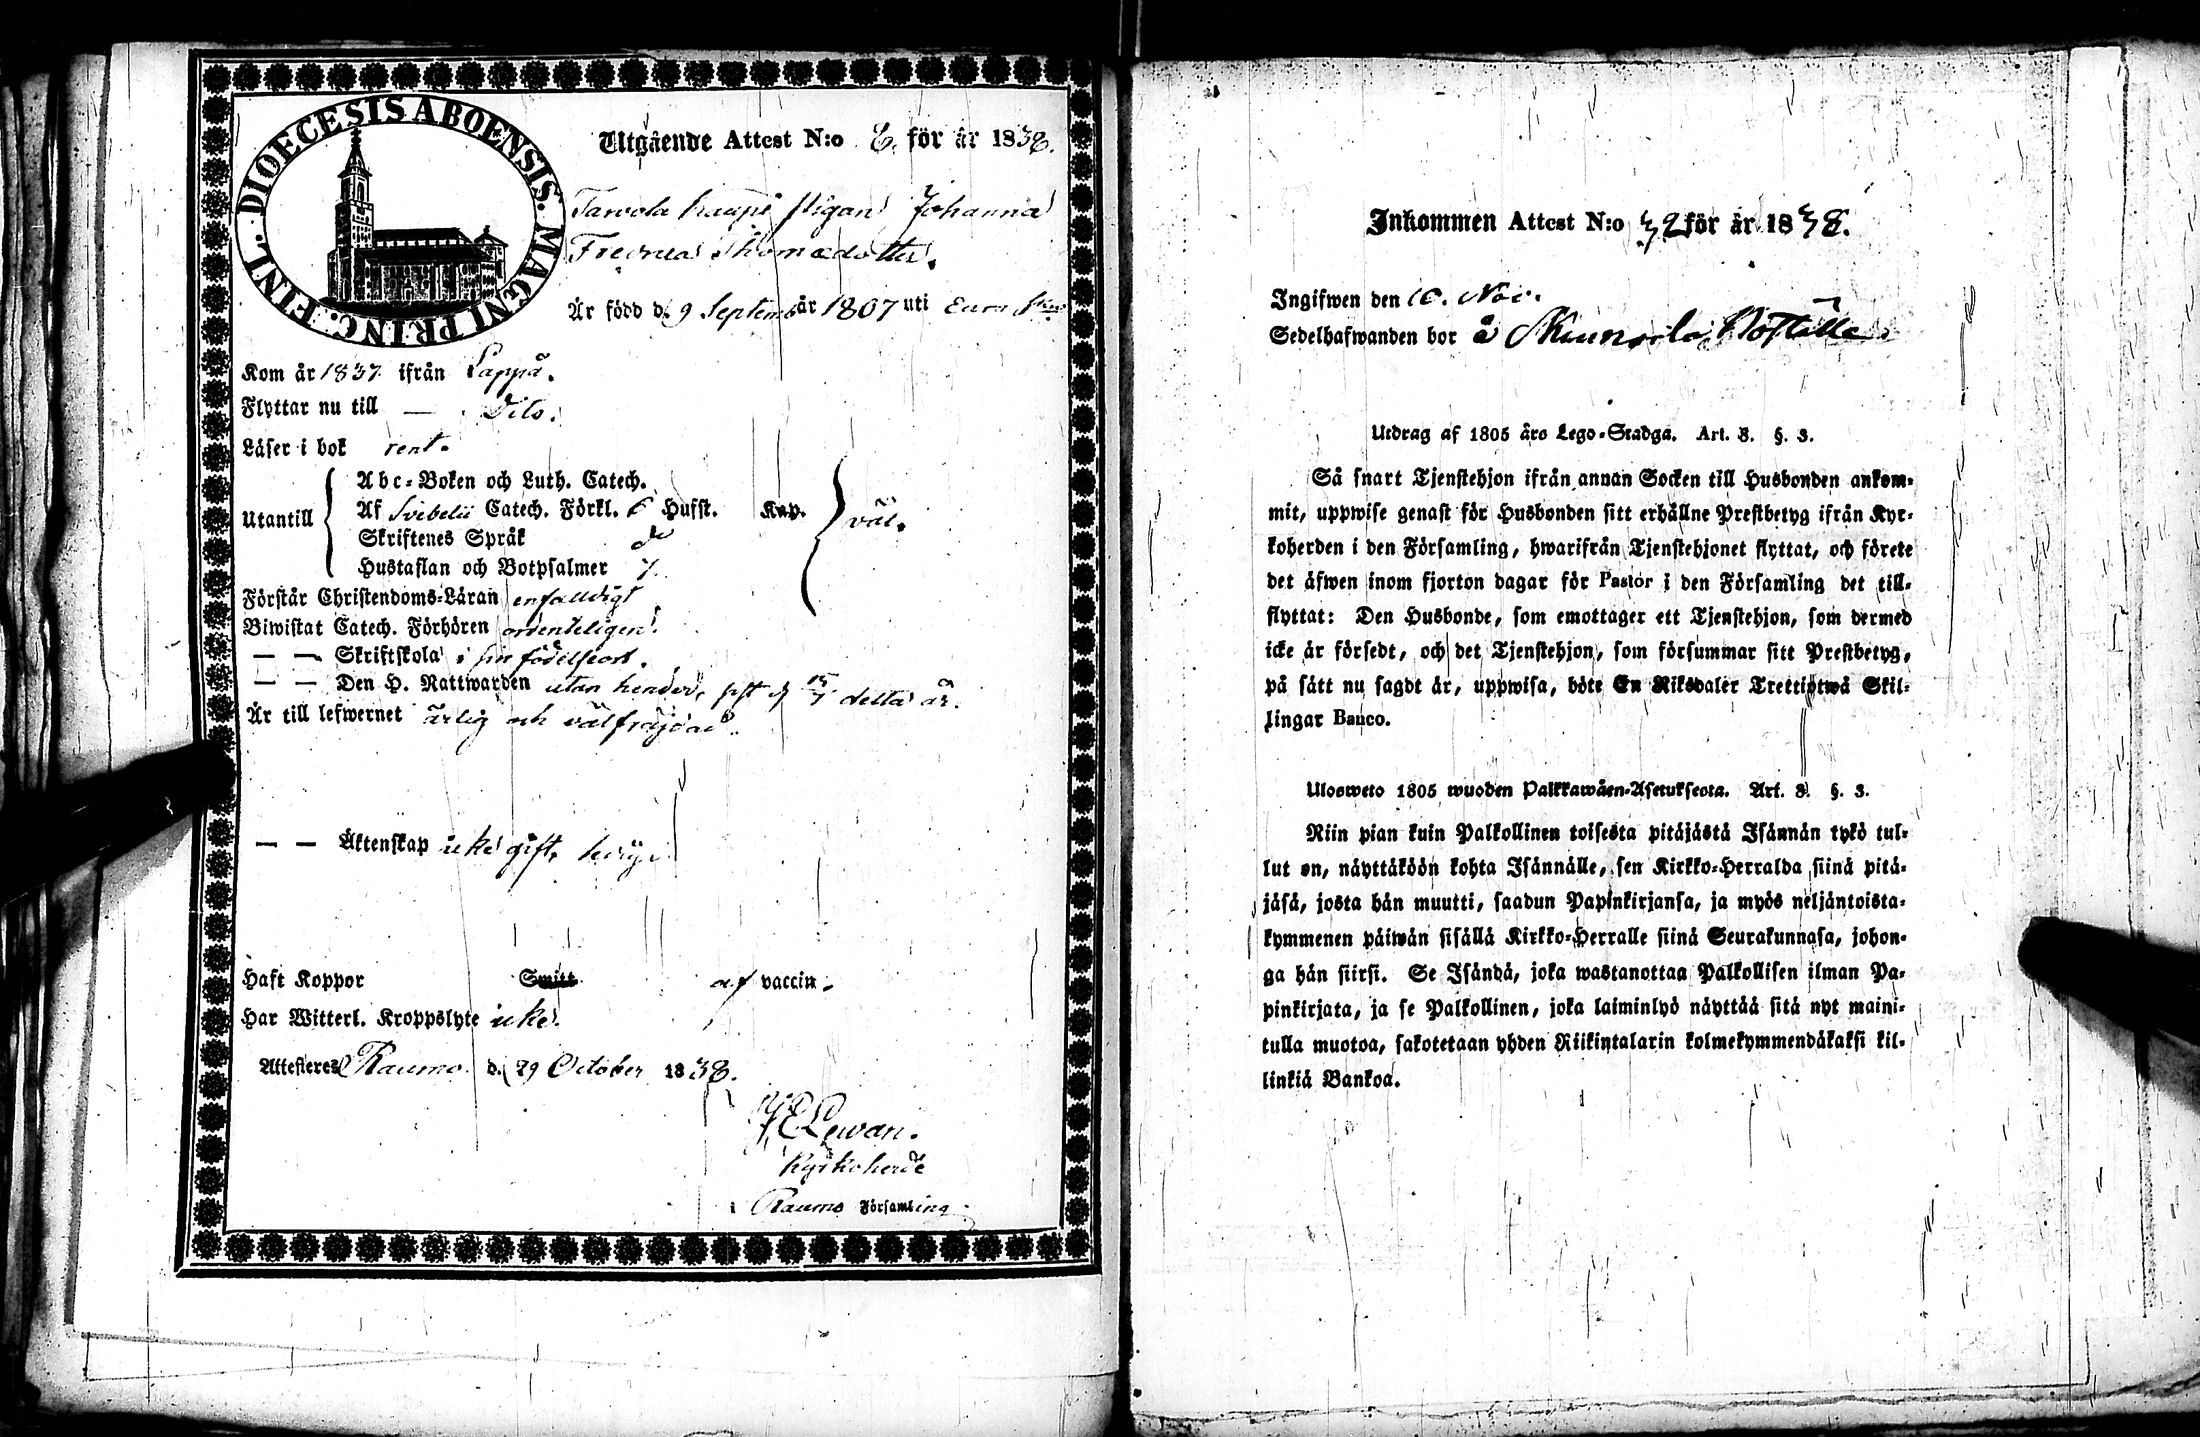 DIOECESIS ABOENSIS. MAGNI PRINC. FINL.
Utgående Attest N:o för år 1838.
pigan Johanna
Thomædotter.
Är född d. 9 Septemb år 1807 uti Eura
Kom år 1837 ifrån Lappi.
Flyttar nu till — Dito.
Läser i bok rent.
Utantill
Abc-Boken och Luth. Catech.
Af Svebelii Catech. Förkl. 6 Hufst. Kap.
väl.
Skriftenes Språk do
Hustaflan och Botpsalmer 7.
Förstår Christendoms-Läran enfaldigt
Biwistat Catech. Förhören ordenteligen.
— — Skriftskola i sin födelseort.
— — Den H. Nattwarden utan hinder, sist d. 15/7 detta år.
Är till lefwernet ärlig och välfrejdad.
— — Äktenskap icke gift, ledig.
Haft Koppor Smitt af vaccin.
Har Witterl. Kroppslyte icke.
Attesteres Raumo d. 29 October 1838.
Kyrkoherde
i Raumo Församling
Inkommen Attest N:o för år 1838.
Ingifwen den 10. Nov.
Sedelhafwanden bor å
Utdrag af 1805 års Lego-Stadga. Art. 3. §. 3.
Så snart Tjenstehjon ifrån annan Socken till Husbonden ankom-
mit, uppwise genast för Husbonden sitt erhållne Prestbetyg ifrån Kyr-
koherden i den Församling, hwarifrån Tjenstehjonet flyttat, och förete
det äfwen inom fjorton dagar för Pastor i den Församling det till-
flyttat: Den Husbonde, som emottager ett Tjenstehjon, som dermed
icke är försedt, och det Tjenstehjon, som försummar sitt Prestbetyg,
på sätt nu sagdt är, uppwisa, böte En Riksdaler Trettiotwå Skil-
lingar Banco.
Ulosweto 1805 wuoden Palkkawäen-Asetuksesta. Art. 3. §. 3.
Niin pian kuin Palkollinen toisesta pitäjästä Isännän tykö tul-
lut on, näyttäköön kohta Isännälle, sen Kirkko-Herralda siinä pitä-
jäsä, josta hän muutti, saadun Papinkirjansa, ja myös neljäntoista-
kymmenen päiwän sisällä Kirkko-Herralle siinä Seurakunnasa, johon-
ga hän siirsi. Se Isändä, joka wastanottaa Palkollisen ilman Pa-
pinkirjata, ja se Palkollinen, joka laiminlyö näyttää sitä nyt maini-
tulla muotoa, sakotetaan yhden Riikintalarin kolmekymmendäkaksi kil-
linkiä Bankoa.